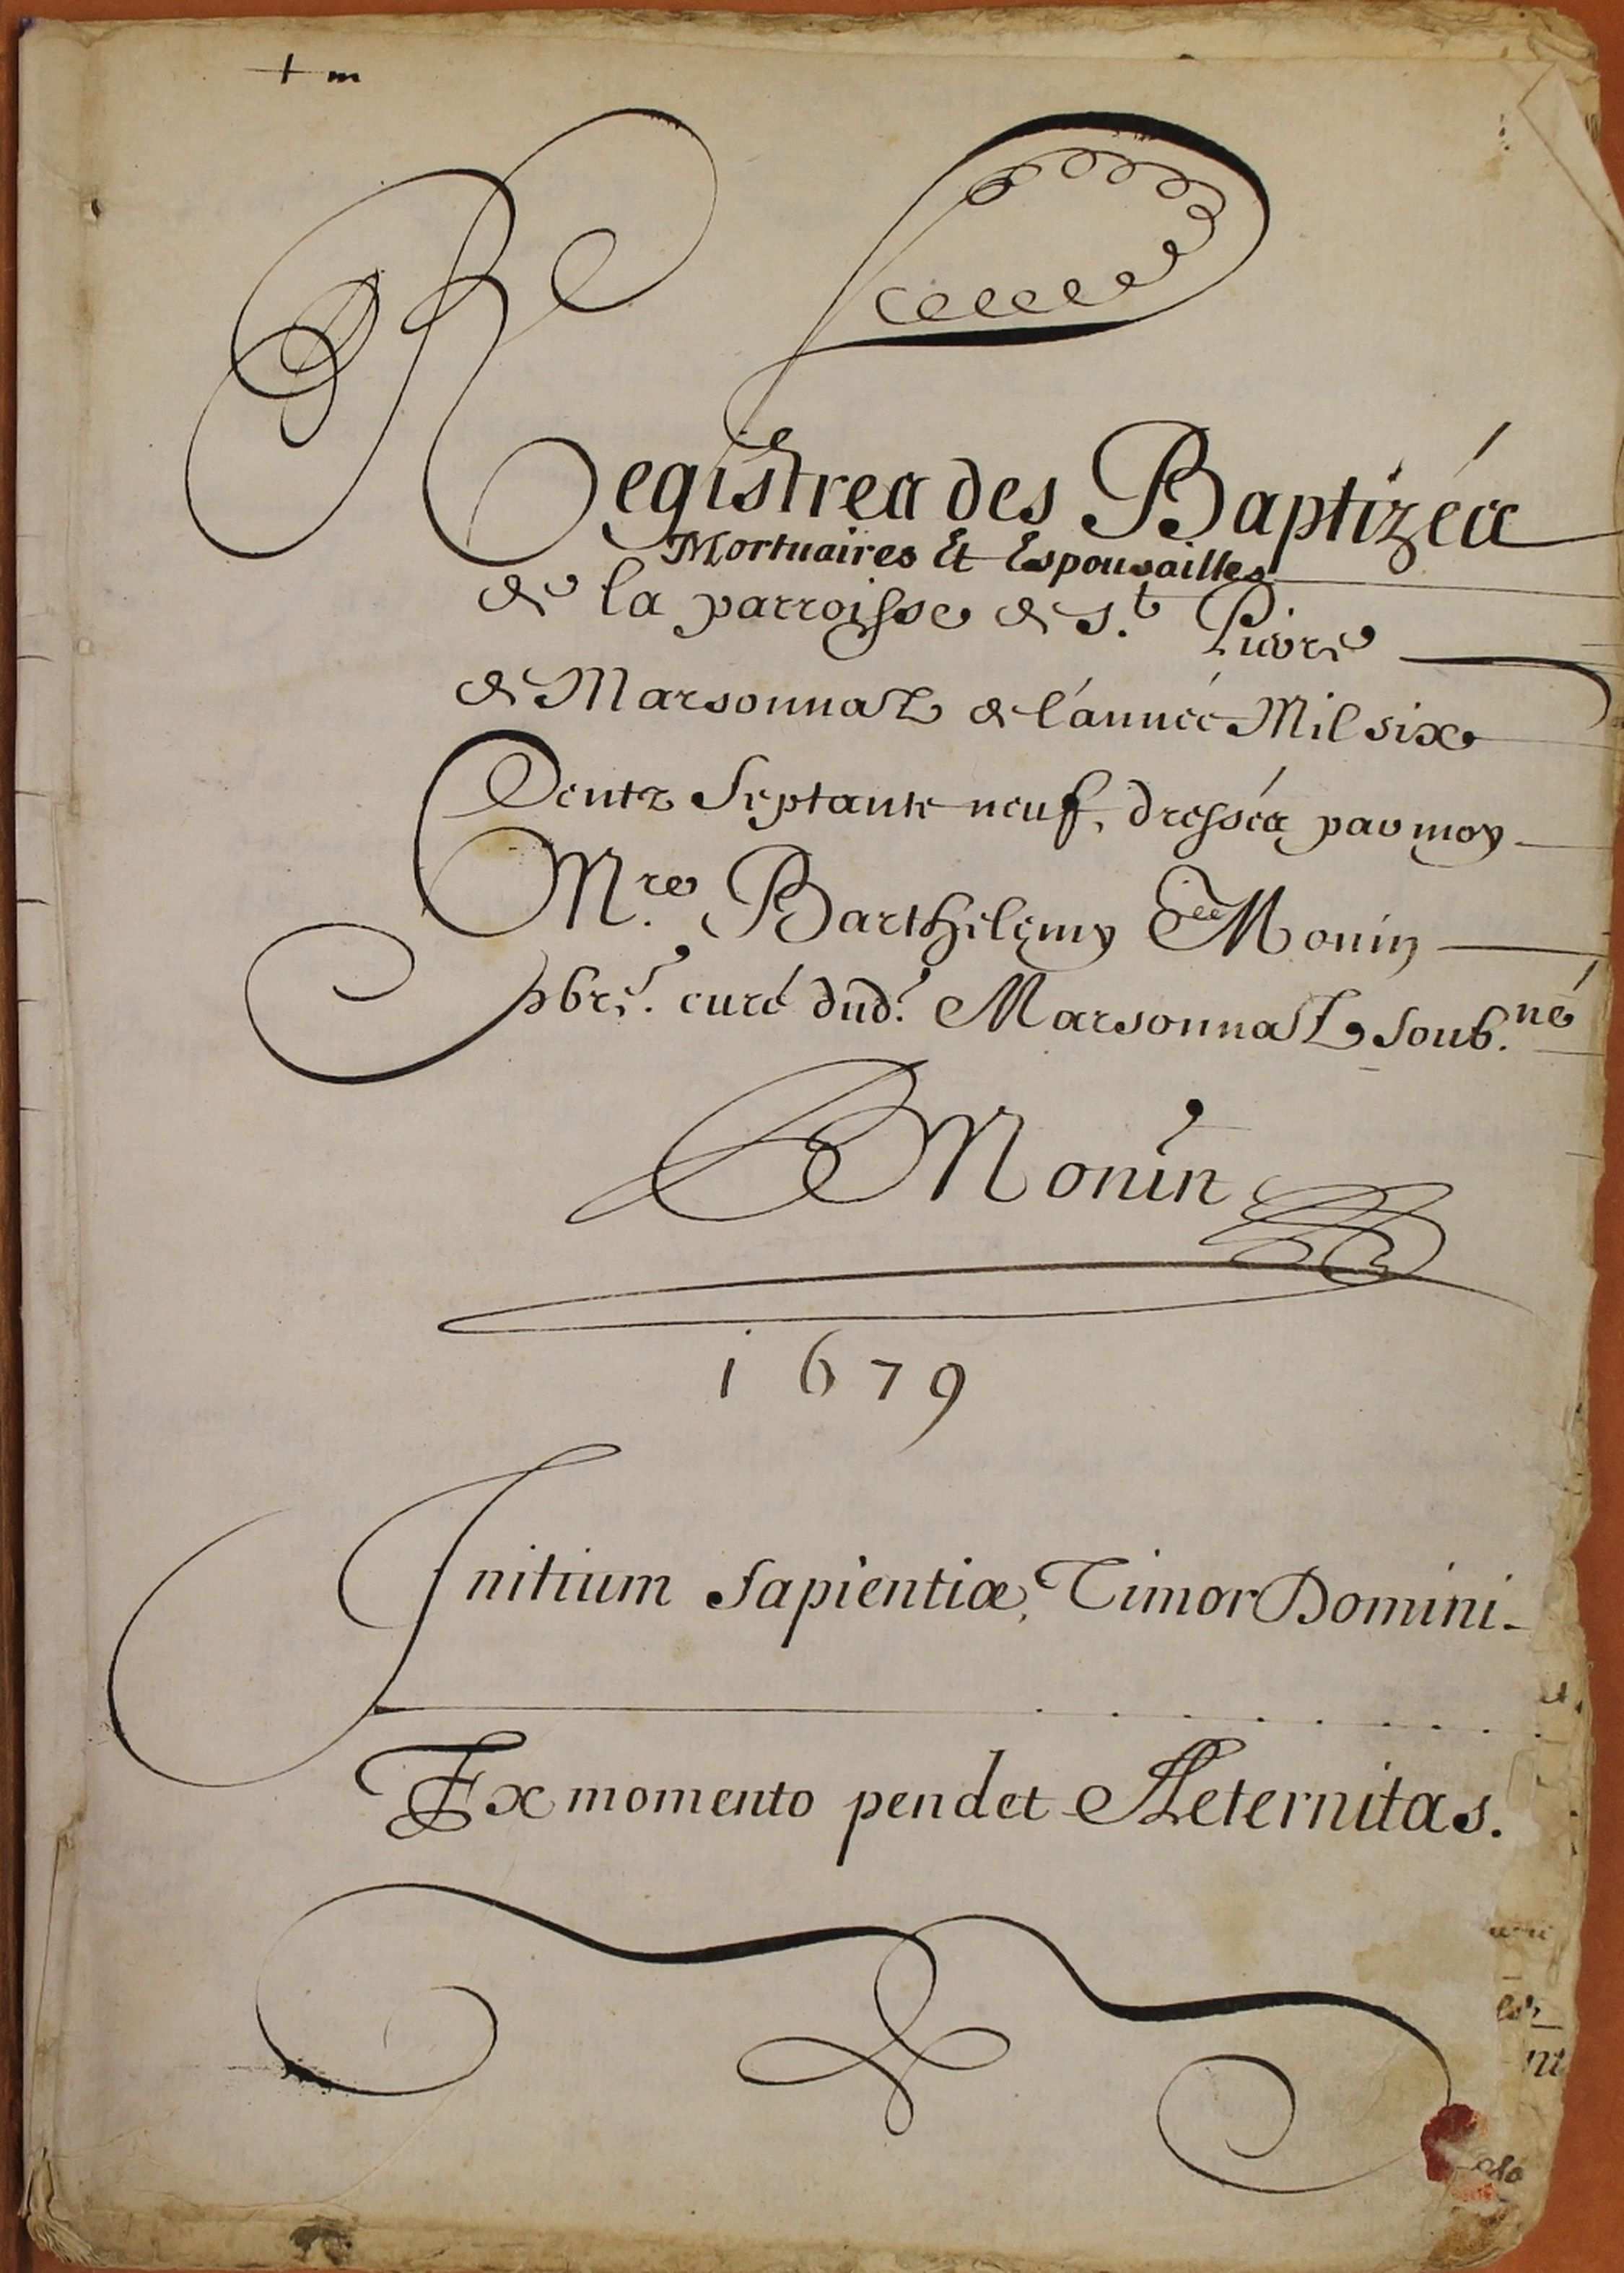 + m
Registres des Baptizés
Mortuaires Et Espousailles
de la parroisse de S.t Pierre
de Marsonnaz de l'année Mil six
Centz Septante neuf, dressés par moy
M.re Barthelemy Monin
pbre. curé dud. Marsonnaz Soub.né
BMonin
1679
Initium Sapientiæ, Timor Domini.
Ex momento pendet Aeternitas.